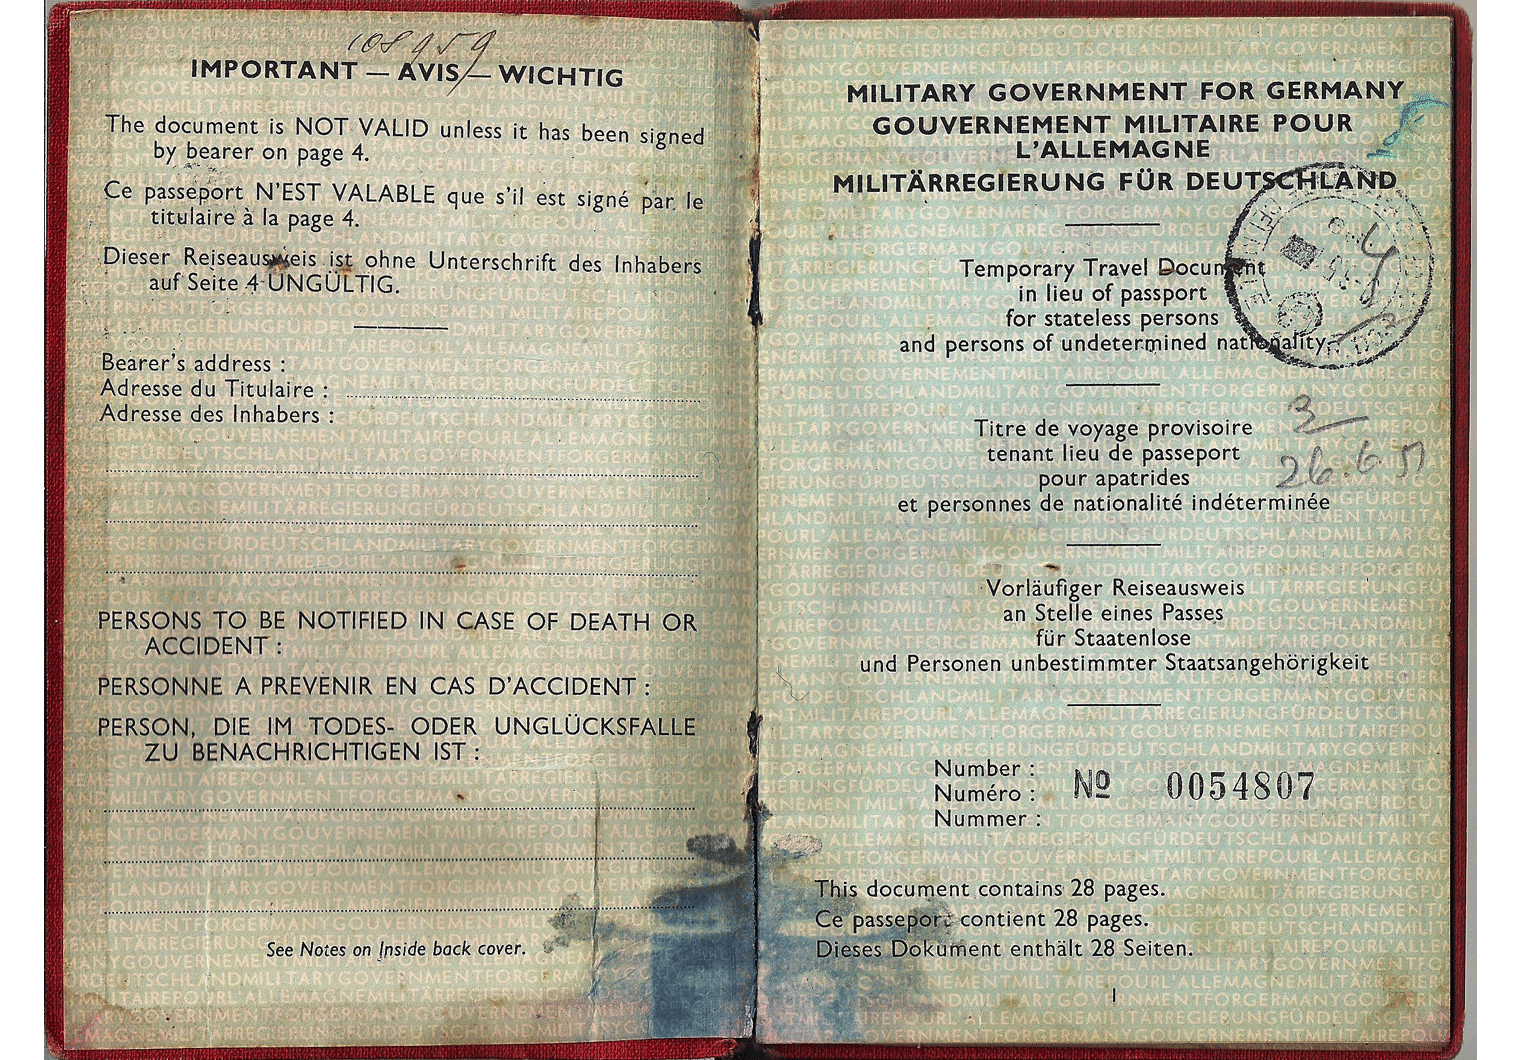 108959
IMPORTANT — AVIS — WICHTIG
The document is NOT VALID unless it has been signed
by bearer on page 4.
Ce passeport N'EST VALABLE que s'il est signé par le
titulaire à la page 4.
Dieser Reiseausweis ist ohne Unterschrift des Inhabers
auf Seite 4 UNGÜLTIG.
Bearer's address :
Adresse du Titulaire :
Adresse des Inhabers :
PERSONS TO BE NOTIFIED IN CASE OF DEATH OR
ACCIDENT :
PERSONNE A PREVENIR EN CAS D'ACCIDENT :
PERSON, DIE IM TODES- ODER UNGLÜCKSFALLE
ZU BENACHRICHTIGEN IST :
See Notes on Inside back cover.
MILITARY GOVERNMENT FOR GERMANY
GOUVERNEMENT MILITAIRE POUR
L'ALLEMAGNE
MILITÄRREGIERUNG FÜR DEUTSCHLAND
Temporary Travel Document
in lieu of passport
for stateless persons
and persons of undetermined nationality
Titre de voyage provisoire
tenant lieu de passeport
pour apatrides
et personnes de nationalité indéterminée
3
26.6.51
Vorläufiger Reiseausweis
an Stelle eines Passes
für Staatenlose
und Personen unbestimmter Staatsangehörigkeit
Number :
Numéro : Nº 0054807
Nummer :
This document contains 28 pages.
Ce passeport contient 28 pages.
Dieses Dokument enthält 28 Seiten.
1